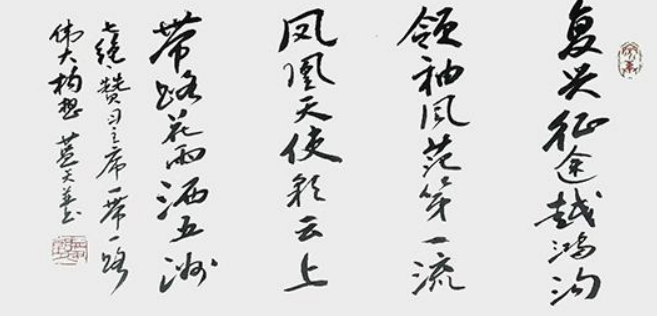 复兴征途越鸿沟
领袖风范第一流
凤凰天使彩云上
带路花雨洒五洲
七绝·赞习主席一带一路
伟大构想 蓝天并书